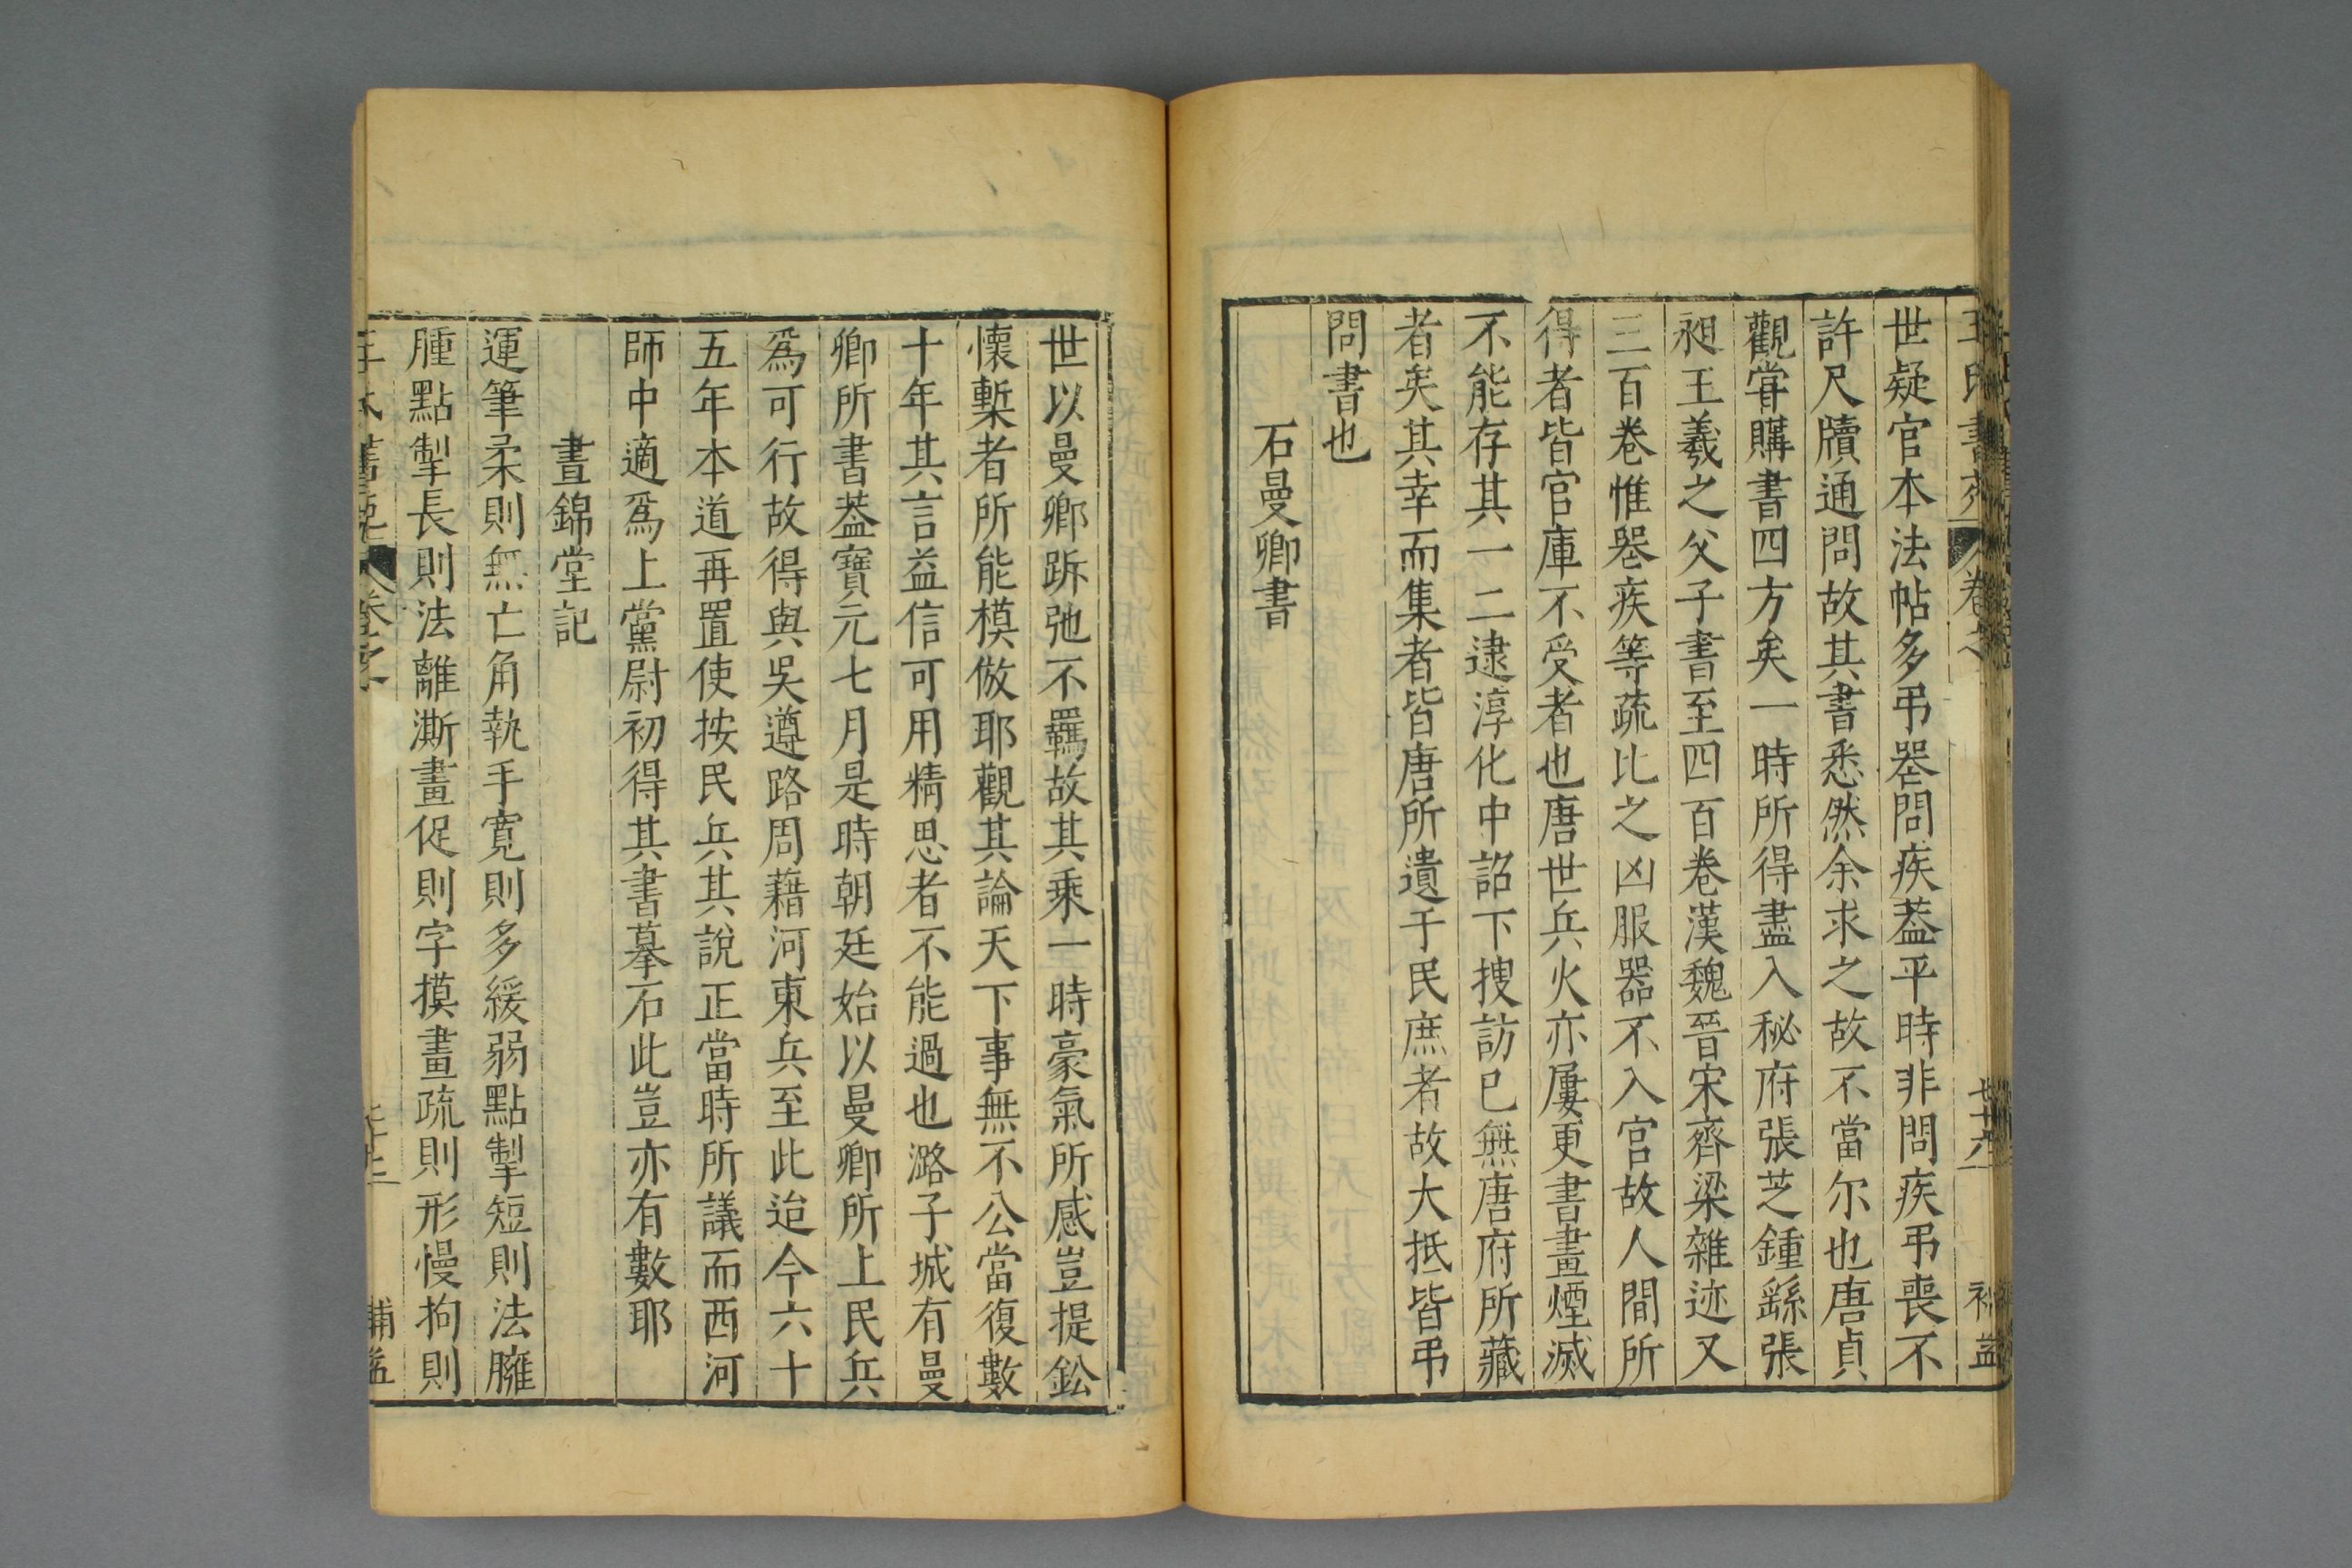 世疑官本法帖多弔喪問疾葢平時非問疾弔喪不
許尺牘通問故其書悉然余求之故不當尔也唐貞
觀嘗購書四方矣一時所得盡入秘府張芝鍾繇張
昶王羲之父子書至四百卷漢魏晉宋齊梁雜迹又
三百卷惟喪疾等疏比之凶服器不入宫故人間所
得者皆官庫不受者也唐世兵火亦屢更書畫煙滅
不能存其一二逮淳化中詔下捜訪已無唐府所藏
者矣其幸而集者皆唐所遺于民庶者故大抵皆弔
問書也
石曼卿書
世以曼卿跅弛不羈故其乘一時豪氣所感豈提鈆
懷槧者所能模倣耶觀其論天下事無不公當復數
十年其言益信可用精思者不能過也潞子城有曼
卿所書葢寶元七月是時朝廷始以曼卿所上民兵
爲可行故得與吳遵路周藉河東兵至此迨今六十
五年本道再置使按民兵其說正當時所議而西河
師中適爲上黨尉初得其書摹石此豈亦有數耶
晝錦堂記
運筆柔則無亡角執手寛則多緩弱點掣短則法臃
腫點掣長則法離澌畫促則字摸畫疏則形慢拘則